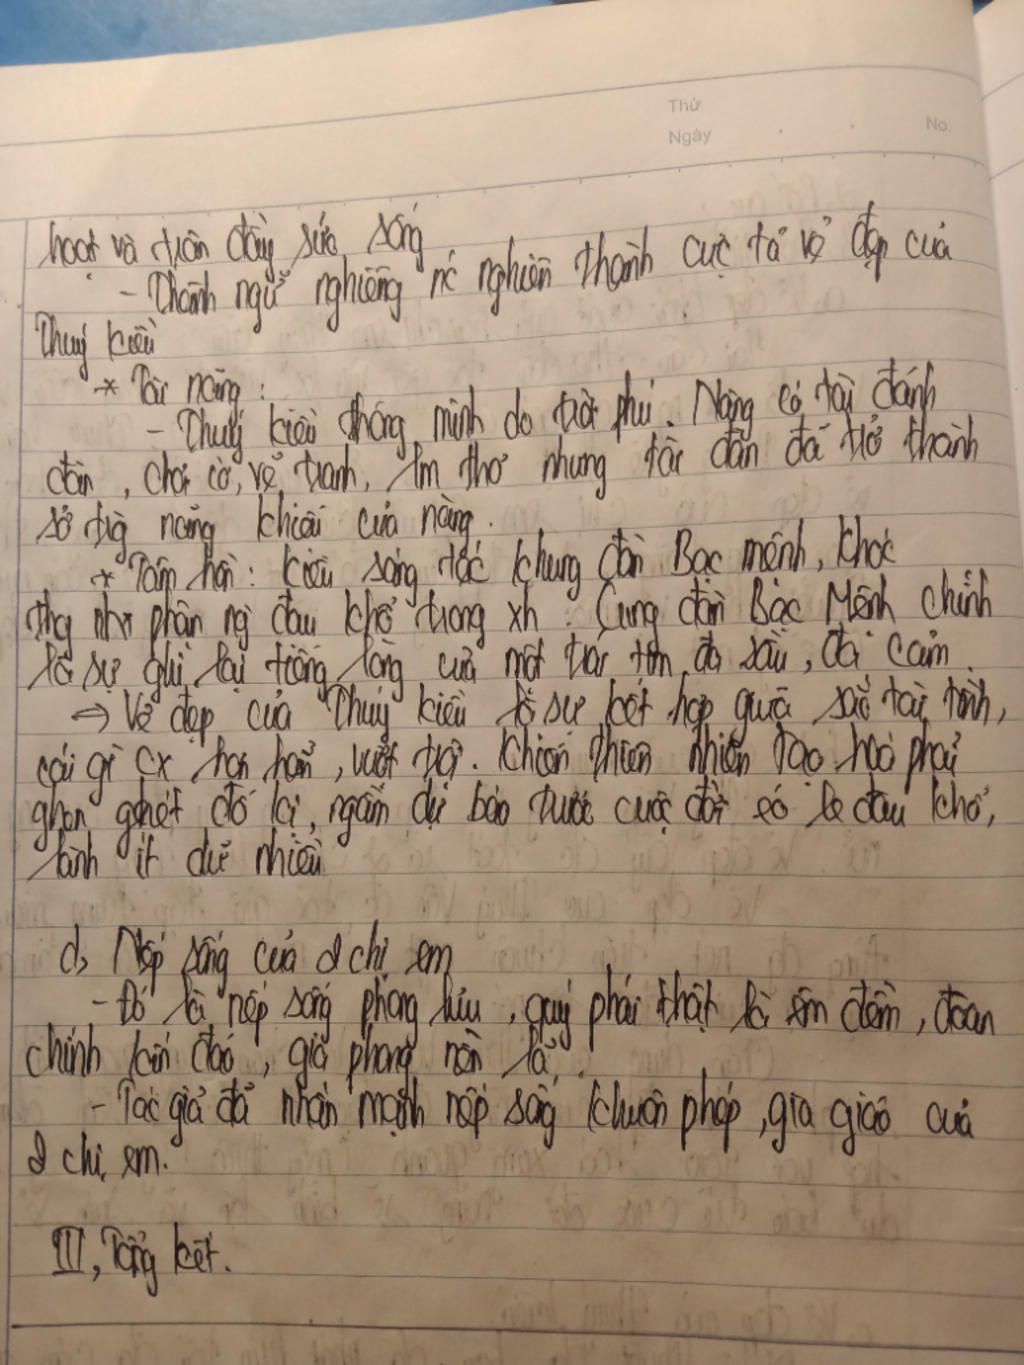 Thứ
Ngày
No.
hoạt và tràn đầy sức sống
- Thành ngữ nghiêng nc nghiên thành cực tả vẻ đẹp của
Thuý kiều
* Tài năng:
- Thuý kiều thông minh do trời phú. Nàng có tài đánh
đàn, chơi cờ, vẽ tranh, làm thơ nhưng tài đàn đã trở thành
sở trg năng khiếu của nàng.
* Tâm hồn: kiều sáng tác khung đàn Bạc mệnh, khóc
thg nhx phận ng đau khổ trong xh. Cung đàn Bạc Mệnh chính
là sự ghi lại tiếng lòng của một trái tim đa sầu, đa cảm.
=> Vẻ đẹp của Thuý kiều là sự kết hợp giữa sắc tài tình,
cái gì cx hơn hẳn, vượt trội. khiến thiên nhiên tạo hoá phải
ghen ghét đố kị, ngầm dự báo trước cuộc đời éo le đau khổ,
lành ít dữ nhiều
d, Nếp sống của 2 chị em
- Đó là nếp sống phong lưu, quý phái thật là êm đềm, đoan
chính kín đáo, gia phong nền
- Tác giả đã nhấn mạnh nếp sống khuôn phép, gia giáo của
2 chị em.
III, Tổng kết.